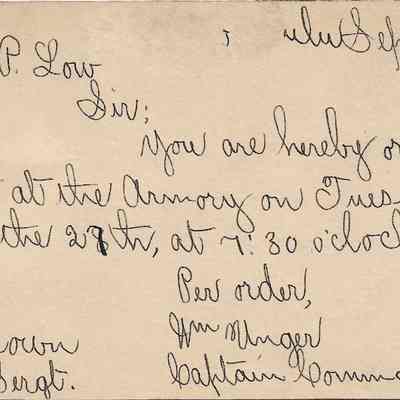 ulu Sep
P. Low
Sir;
You are hereby or
at the Armory on Tues-
the 27th, at 7:30 o'cloc
Per order,
Wm Unger
own
Captain Comma
Sergt.